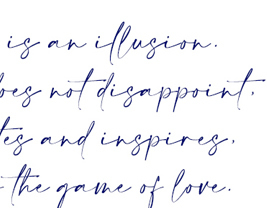 is an illusion.
oes not disappoint,
tes and inspires,
the game of love.